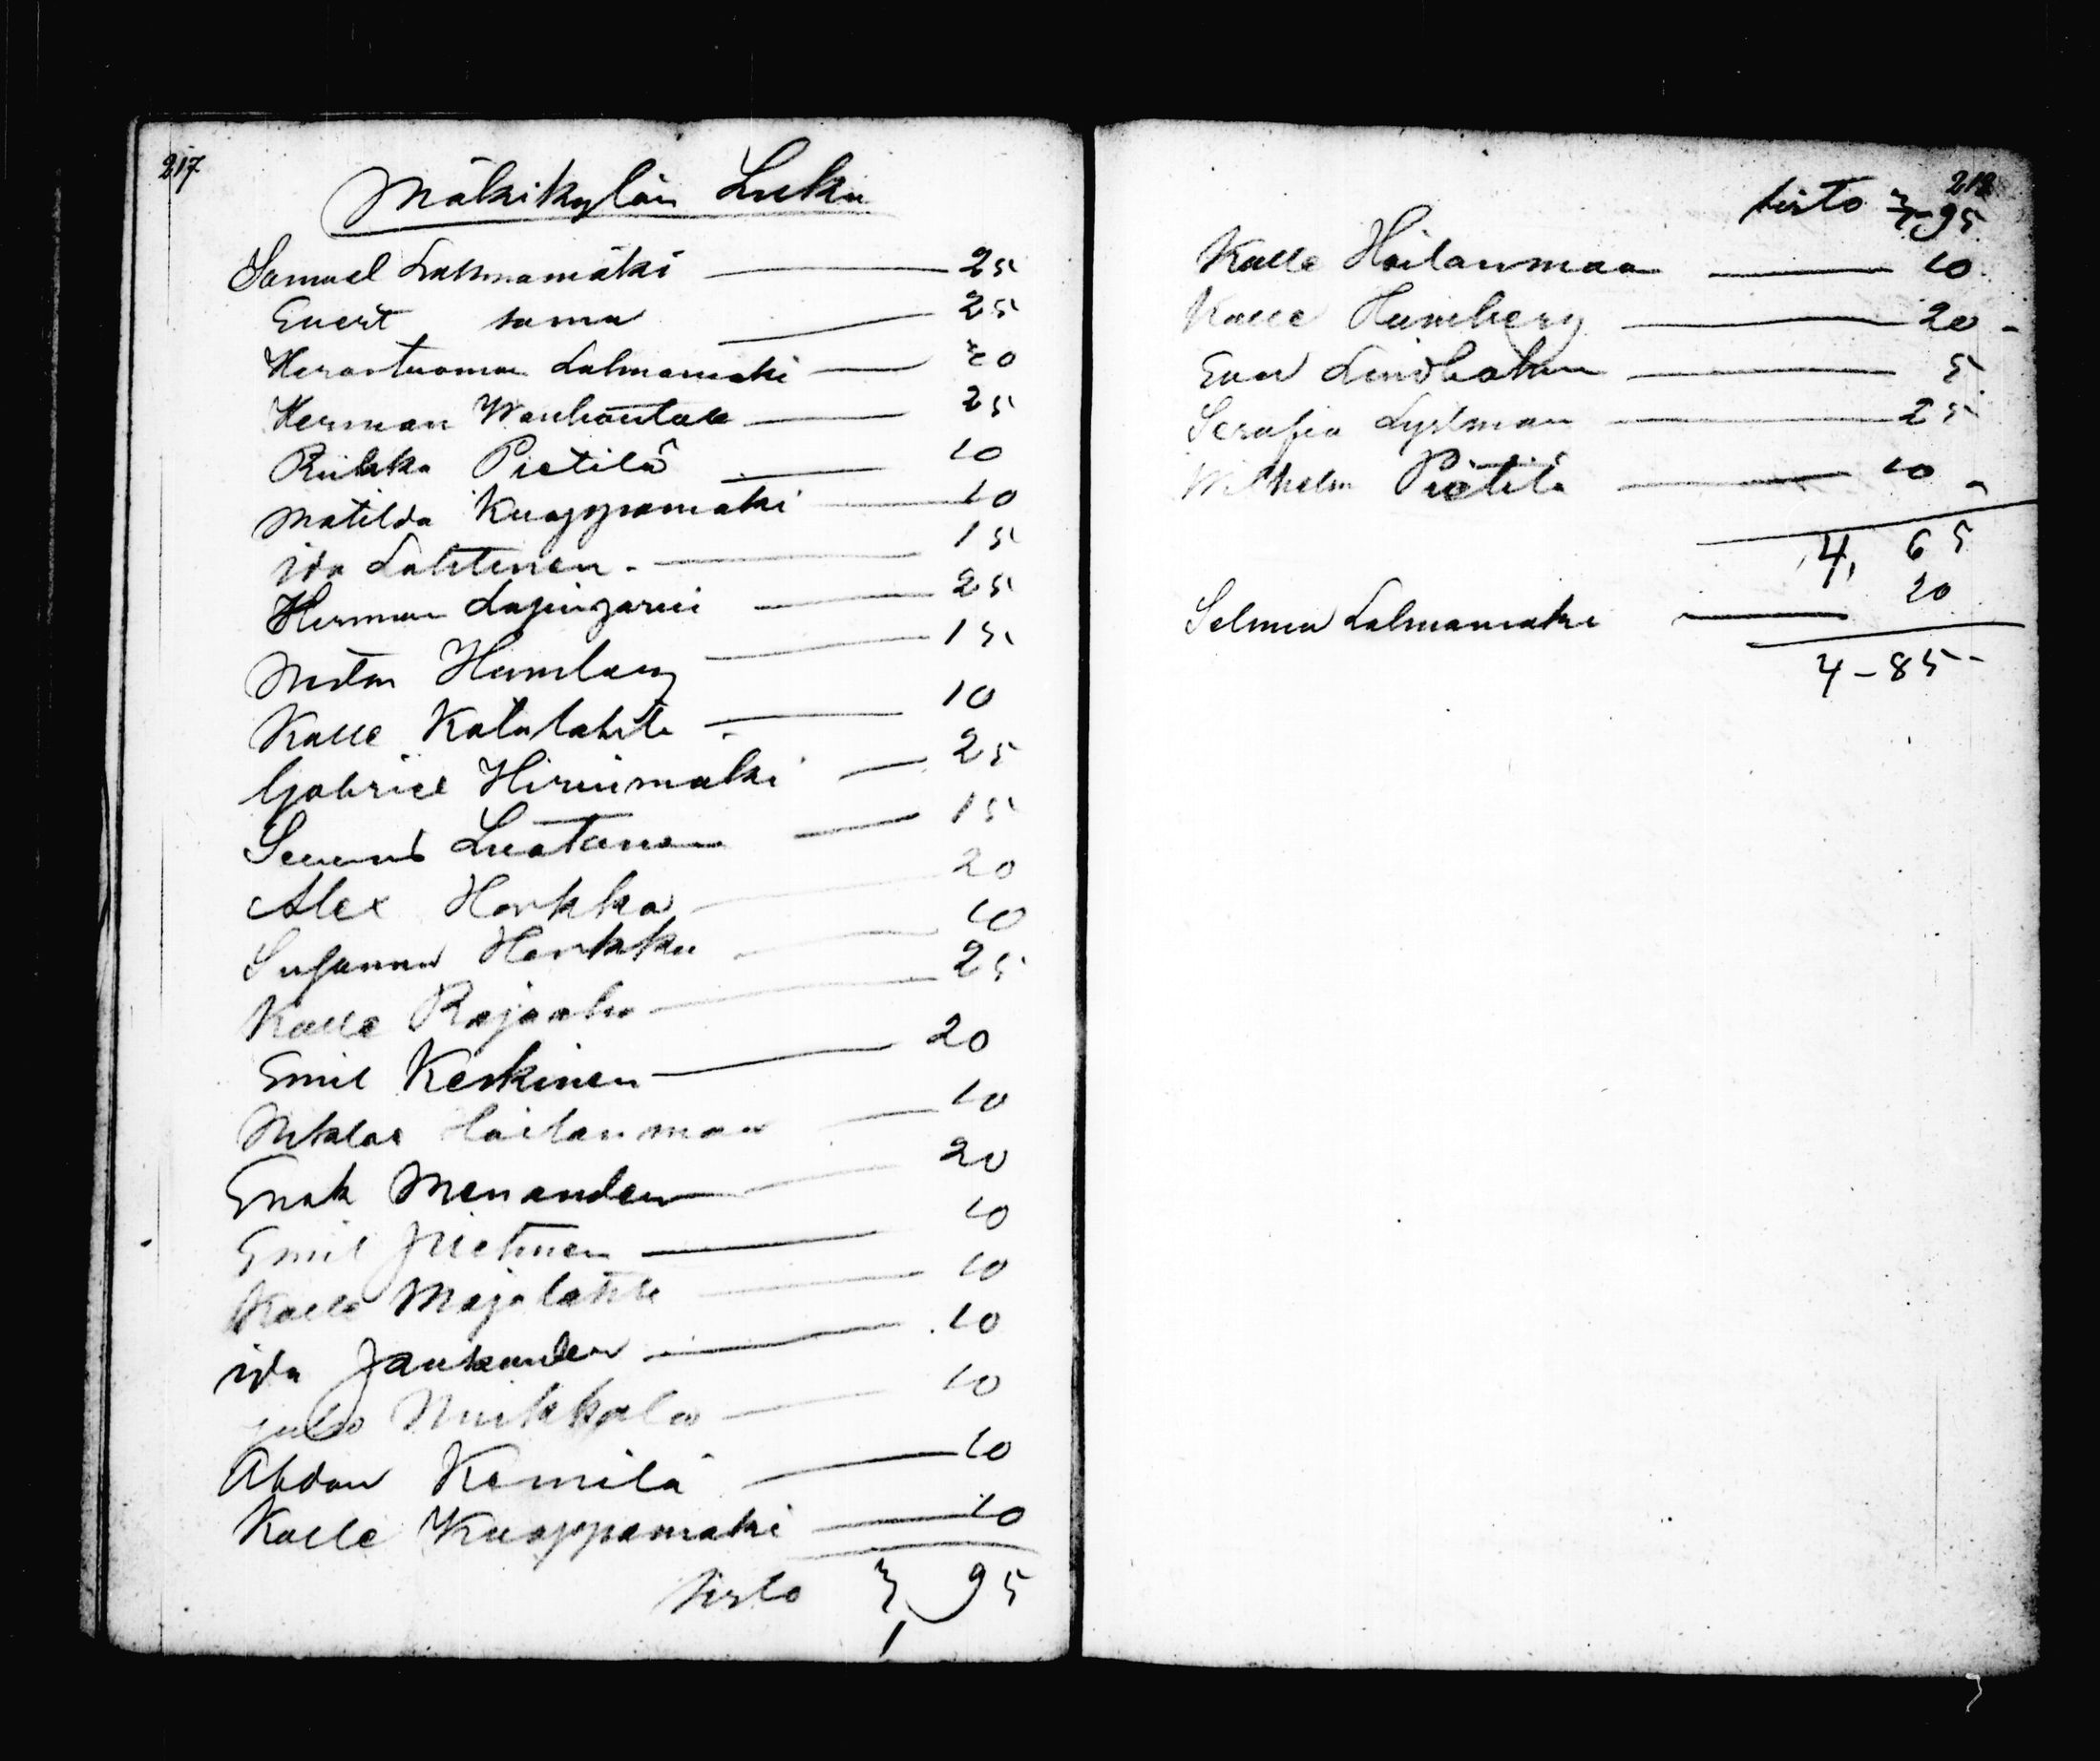 217
Mäkikylän Luku
Samuel Lahmamäki 25
Evert sama 25
Lalmamaki 20
Herman Wanhautalo 25
Riikka Pietilä 10
Matilda Kuoppamaki 10
ida Lahtinen - 15
Herman 25
Humberg 15
Kalle Katalahti 10
Gabriel Hirvimaki 25
Luotanen 15
Alex Harkka 20
Sufanna Harkka 10
Kalle Rajaaho 25
Emil Keskinen 20
Niklas Hoilanmaa 10
Menander 20
Emil 10
Kalle Majalahti 10
ida 10
Muikkala 10
Kemilä 10
Kalle Kuoppamaki 10
sirto 3, 95
218
siirto 3-95
Kalle Hoilanmaa 10
Kalle Humberg 20 -
Eva Lindholm 5
Serafia Lystman 25
Wilhelm Pietilä 10
4, 65
Selma Lalmamaki 20
4-85-